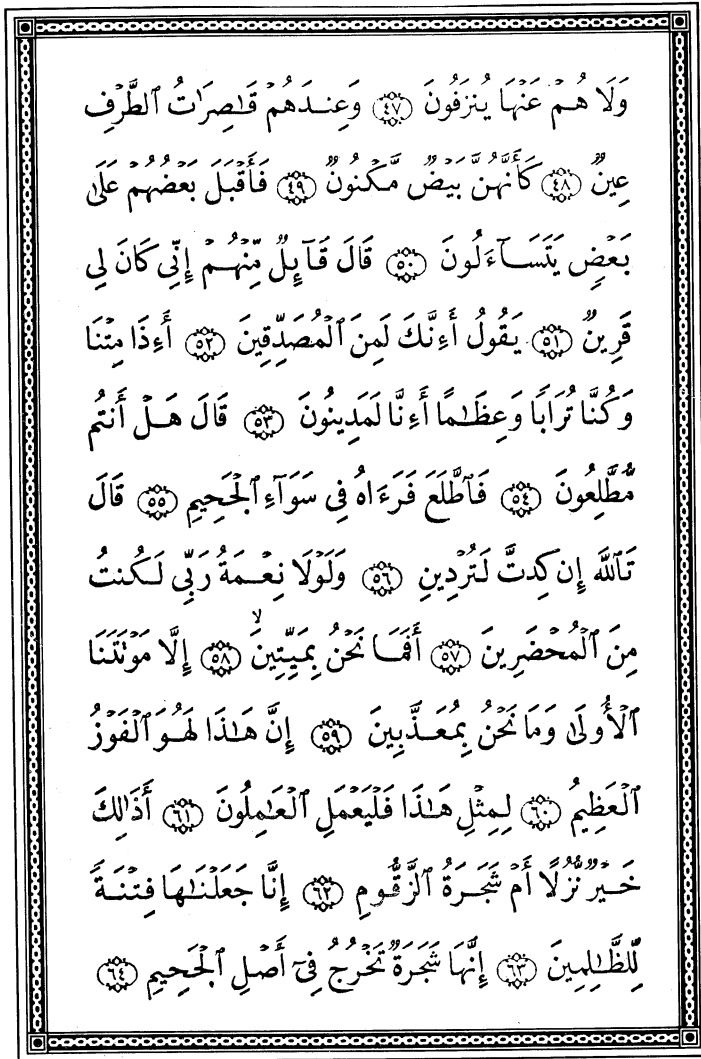 وَلَا هُمْ عَنْهَا يُنزَفُونَ ﴿٤٧﴾ وَعِندَهُمْ قَٰصِرَٰتُ ٱلطَّرْفِ
عِينٌ ﴿٤٨﴾ كَأَنَّهُنَّ بَيْضٌ مَّكْنُونٌ ﴿٤٩﴾ فَأَقْبَلَ بَعْضُهُمْ عَلَىٰ
بَعْضٍ يَتَسَآءَلُونَ ﴿٥٠﴾ قَالَ قَآئِلٌ مِّنْهُمْ إِنِّي كَانَ لِي
قَرِينٌ ﴿٥١﴾ يَقُولُ أَءِنَّكَ لَمِنَ ٱلْمُصَدِّقِينَ ﴿٥٢﴾ أَءِذَا مِتْنَا
وَكُنَّا تُرَابًا وَعِظَٰمًا أَءِنَّا لَمَدِينُونَ ﴿٥٣﴾ قَالَ هَلْ أَنتُم
مُّطَّلِعُونَ ﴿٥٤﴾ فَٱطَّلَعَ فَرَءَاهُ فِي سَوَآءِ ٱلْجَحِيمِ ﴿٥٥﴾ قَالَ
تَٱللَّهِ إِن كِدتَّ لَتُرْدِينِ ﴿٥٦﴾ وَلَوْلَا نِعْمَةُ رَبِّي لَكُنتُ
مِنَ ٱلْمُحْضَرِينَ ﴿٥٧﴾ أَفَمَا نَحْنُ بِمَيِّتِينَ ۙ ﴿٥٨﴾ إِلَّا مَوْتَتَنَا
ٱلْأُولَىٰ وَمَا نَحْنُ بِمُعَذَّبِينَ ﴿٥٩﴾ إِنَّ هَٰذَا لَهُوَ ٱلْفَوْزُ
ٱلْعَظِيمُ ﴿٦٠﴾ لِمِثْلِ هَٰذَا فَلْيَعْمَلِ ٱلْعَٰمِلُونَ ﴿٦١﴾ أَذَٰلِكَ
خَيْرٌ نُّزُلًا أَمْ شَجَرَةُ ٱلزَّقُّومِ ﴿٦٢﴾ إِنَّا جَعَلْنَٰهَا فِتْنَةً
لِّلظَّٰلِمِينَ ﴿٦٣﴾ إِنَّهَا شَجَرَةٌ تَخْرُجُ فِيٓ أَصْلِ ٱلْجَحِيمِ ﴿٦٤﴾